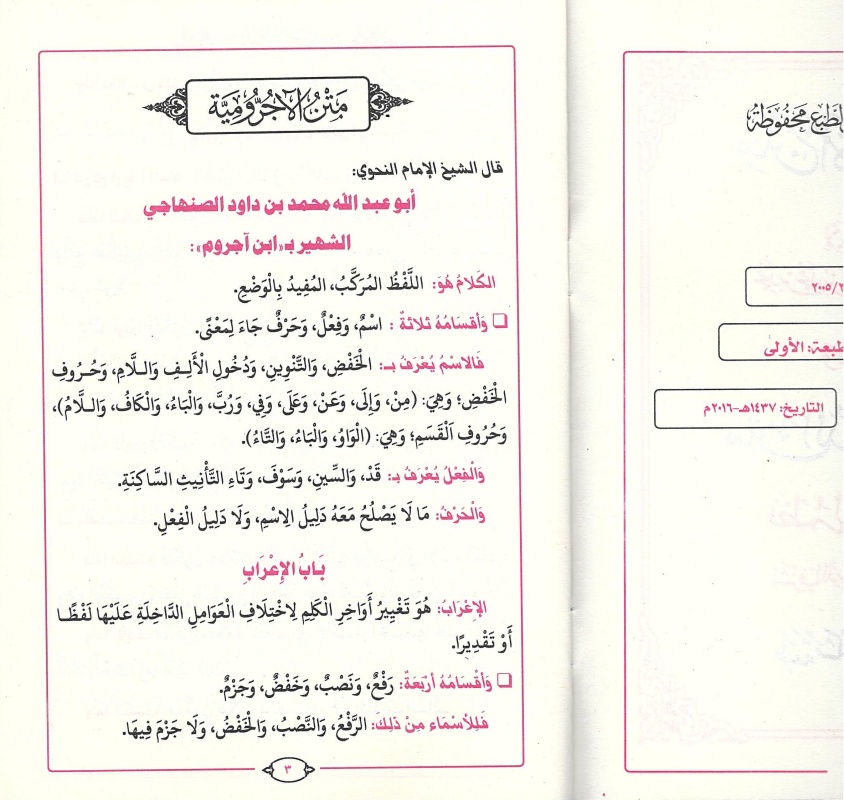 لطبع محفوظة
٢٠٠٥/٢
طبعة: الأولى
التاريخ: ١٤٣٧هـ-٢٠١٦م
مَتْنُ الآجُرُّومِيَّة
قال الشيخ الإمام النحوي:
أبو عبد الله محمد بن داود الصنهاجي
الشهير بـ«ابن آجروم»:
الكَلَامُ هُوَ: اللَّفْظُ المُرَكَّبُ، المُفِيدُ بِالْوَضْعِ.
وَأَقْسَامُهُ ثَلاثَةٌ: اسْمٌ، وَفِعْلٌ، وَحَرْفٌ جَاءَ لِمَعْنًى.
فَالِاسْمُ يُعْرَفُ بـ: الْخَفْضِ، وَالتَّنْوِينِ، وَدُخُولِ الْأَلِفِ وَاللَّامِ، وَحُرُوفِ
الْخَفْضِ؛ وَهِيَ: (مِنْ، وَإِلَى، وَعَنْ، وَعَلَى، وَفِي، وَرُبَّ، وَالْبَاءُ، وَالْكَافُ، وَاللَّامُ)،
وَحُرُوفِ الْقَسَمِ؛ وَهِيَ: (الْوَاوُ، وَالْبَاءُ، وَالتَّاءُ).
وَالْفِعْلُ يُعْرَفُ بـ: قَدْ، وَالسِّينِ، وَسَوْفَ، وَتَاءِ التَّأْنِيثِ السَّاكِنَةِ.
وَالْحَرْفُ: مَا لَا يَصْلُحُ مَعَهُ دَلِيلُ الِاسْمِ، وَلَا دَلِيلُ الْفِعْلِ.
بَابُ الإِعْرَابِ
الإِعْرَابُ: هُوَ تَغْيِيرُ أَوَاخِرِ الْكَلِمِ لِاخْتِلَافِ الْعَوَامِلِ الدَّاخِلَةِ عَلَيْهَا لَفْظًا
أَوْ تَقْدِيرًا.
وَأَقْسَامُهُ أَرْبَعَةٌ: رَفْعٌ، وَنَصْبٌ، وَخَفْضٌ، وَجَزْمٌ.
فَلِلأَسْمَاءِ مِنْ ذَلِكَ: الرَّفْعُ، وَالنَّصْبُ، وَالْخَفْضُ، وَلَا جَزْمَ فِيهَا.
٣